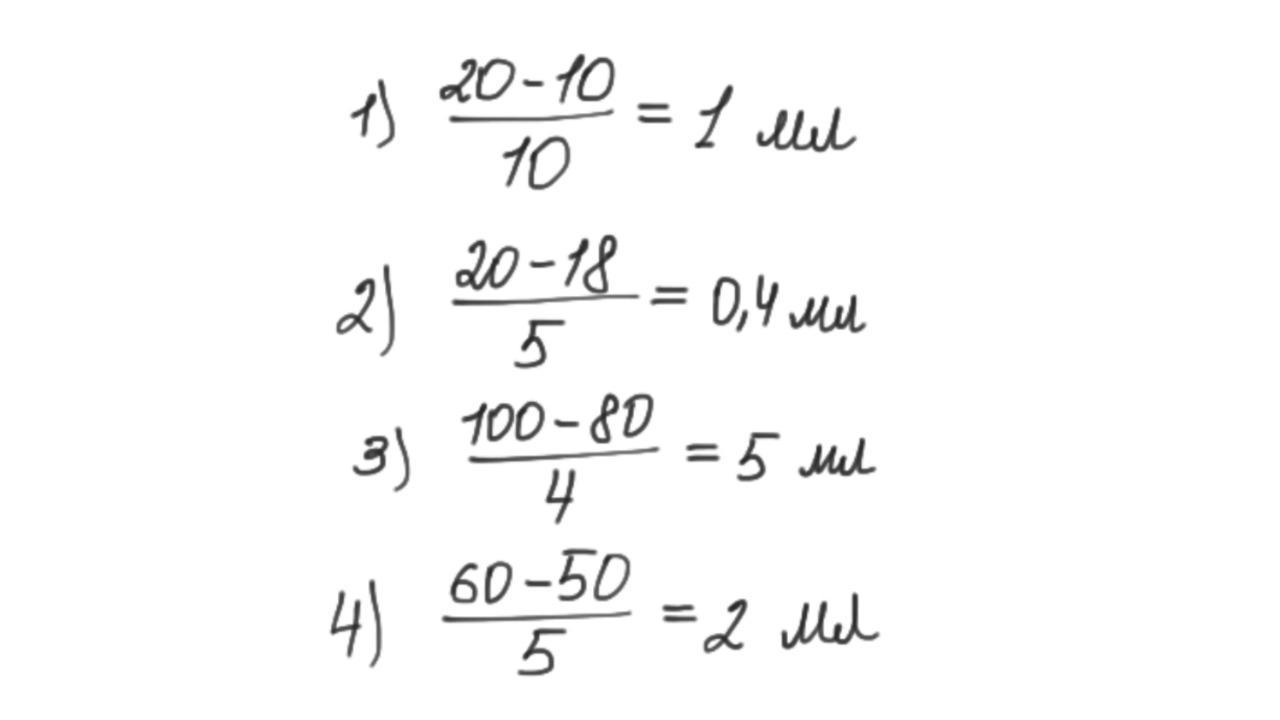 1) (20-10)/10 = 1 мл
2) (20-18)/5 = 0,4 мл
3) (100-80)/4 = 5 мл
4) (60-50)/5 = 2 мл